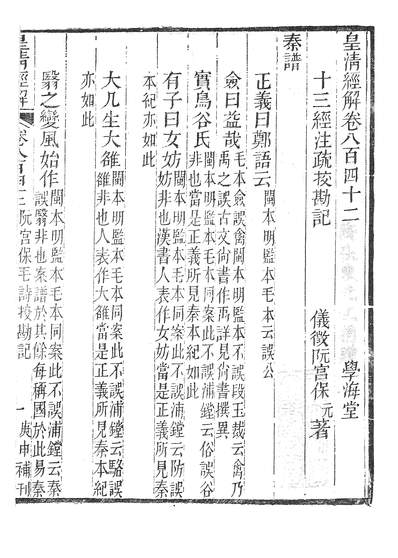 皇清經解卷八百四十二 學海堂
十三經注疏挍勘記 儀徵阮宮保元著
秦譜
正義曰鄭語云閩本明監本毛本云誤公
僉曰益哉毛本僉誤禽閩本明監本不誤段玉裁云禽乃
禹之誤古文尚書作禹詳見尚書撰異
實鳥谷氏閩本明監本毛本同案此不誤浦鏜云俗誤谷
非也當是正義所見秦本紀如此
有子曰女妨閩本明監本毛本同案此不誤浦鏜云防誤
妨非也漢書人表作女妨當是正義所見秦
本紀亦如此
大几生大雒閩本明監本毛本同案此不誤浦鏜云駱誤
雒非也人表作大雒當是正義所見秦本紀
亦如此
翳之變風始作閩本明監本毛本同案此不誤浦鏜云秦
誤翳非也案譜於其餘每稱國於此易秦
皇清經解 卷八百四十二 阮宮保毛詩挍勘記 一 庚申補刊